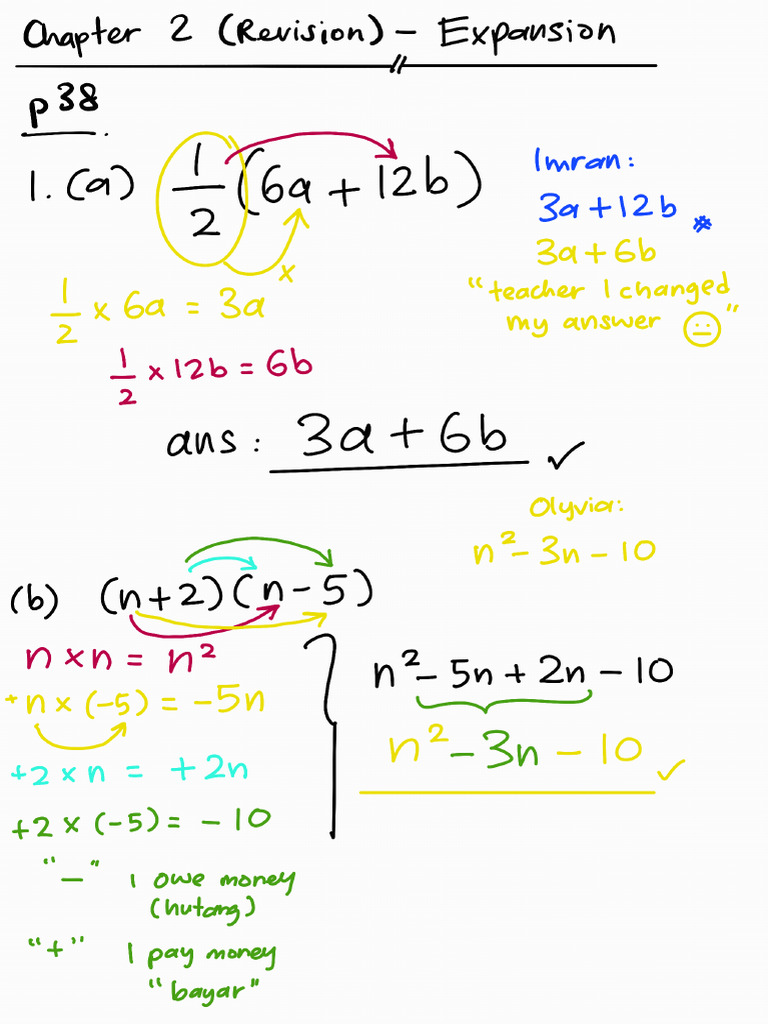 Chapter 2 (Revision) – Expansion
p38
1. (a) 1/2 (6a + 12b)
Imran:
3a + 12b *
3a + 6b
"teacher I changed
my answer 😐"
x
1/2 × 6a = 3a
1/2 × 12b = 6b
ans: 3a + 6b ✓
Olyvia:
n² – 3n – 10
(b) (n + 2)(n – 5)
n × n = n²
+n × (–5) = –5n
+2 × n = +2n
+2 × (–5) = –10
n² – 5n + 2n – 10
n² – 3n – 10 ✓
"–" I owe money
(hutang)
"+" I pay money
"bayar"